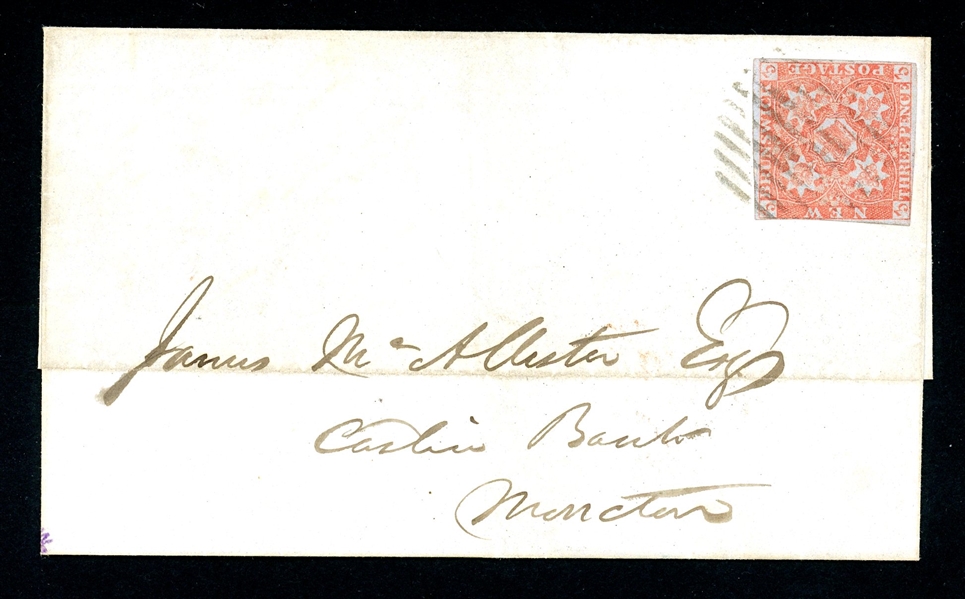 POSTAGE
THREE PENCE
NEW
BRUNSWICK
3
3
3
3
James McAllister Esq
Cashier Bank
Moncton